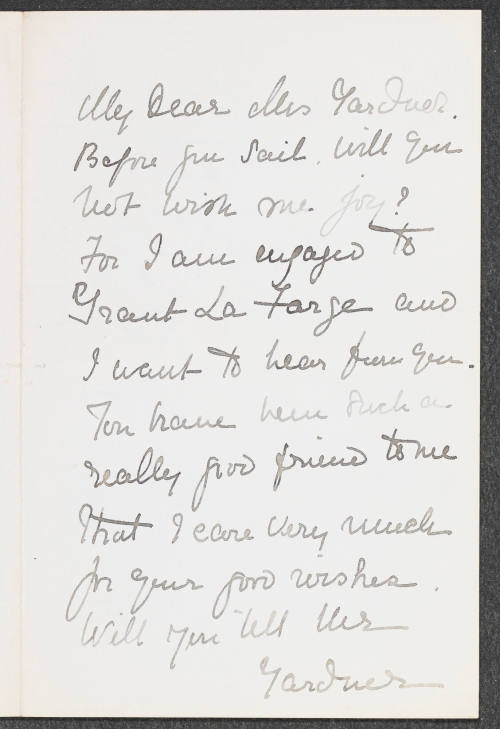 My Dear Mrs Gardner.
Before you sail, will you
not wish me joy?
For I am engaged to
Grant La Farge and
I want to hear from you.
You have been such a
really good friend to me
that I care very much
for your good wishes.
Will you tell Mr
Gardner